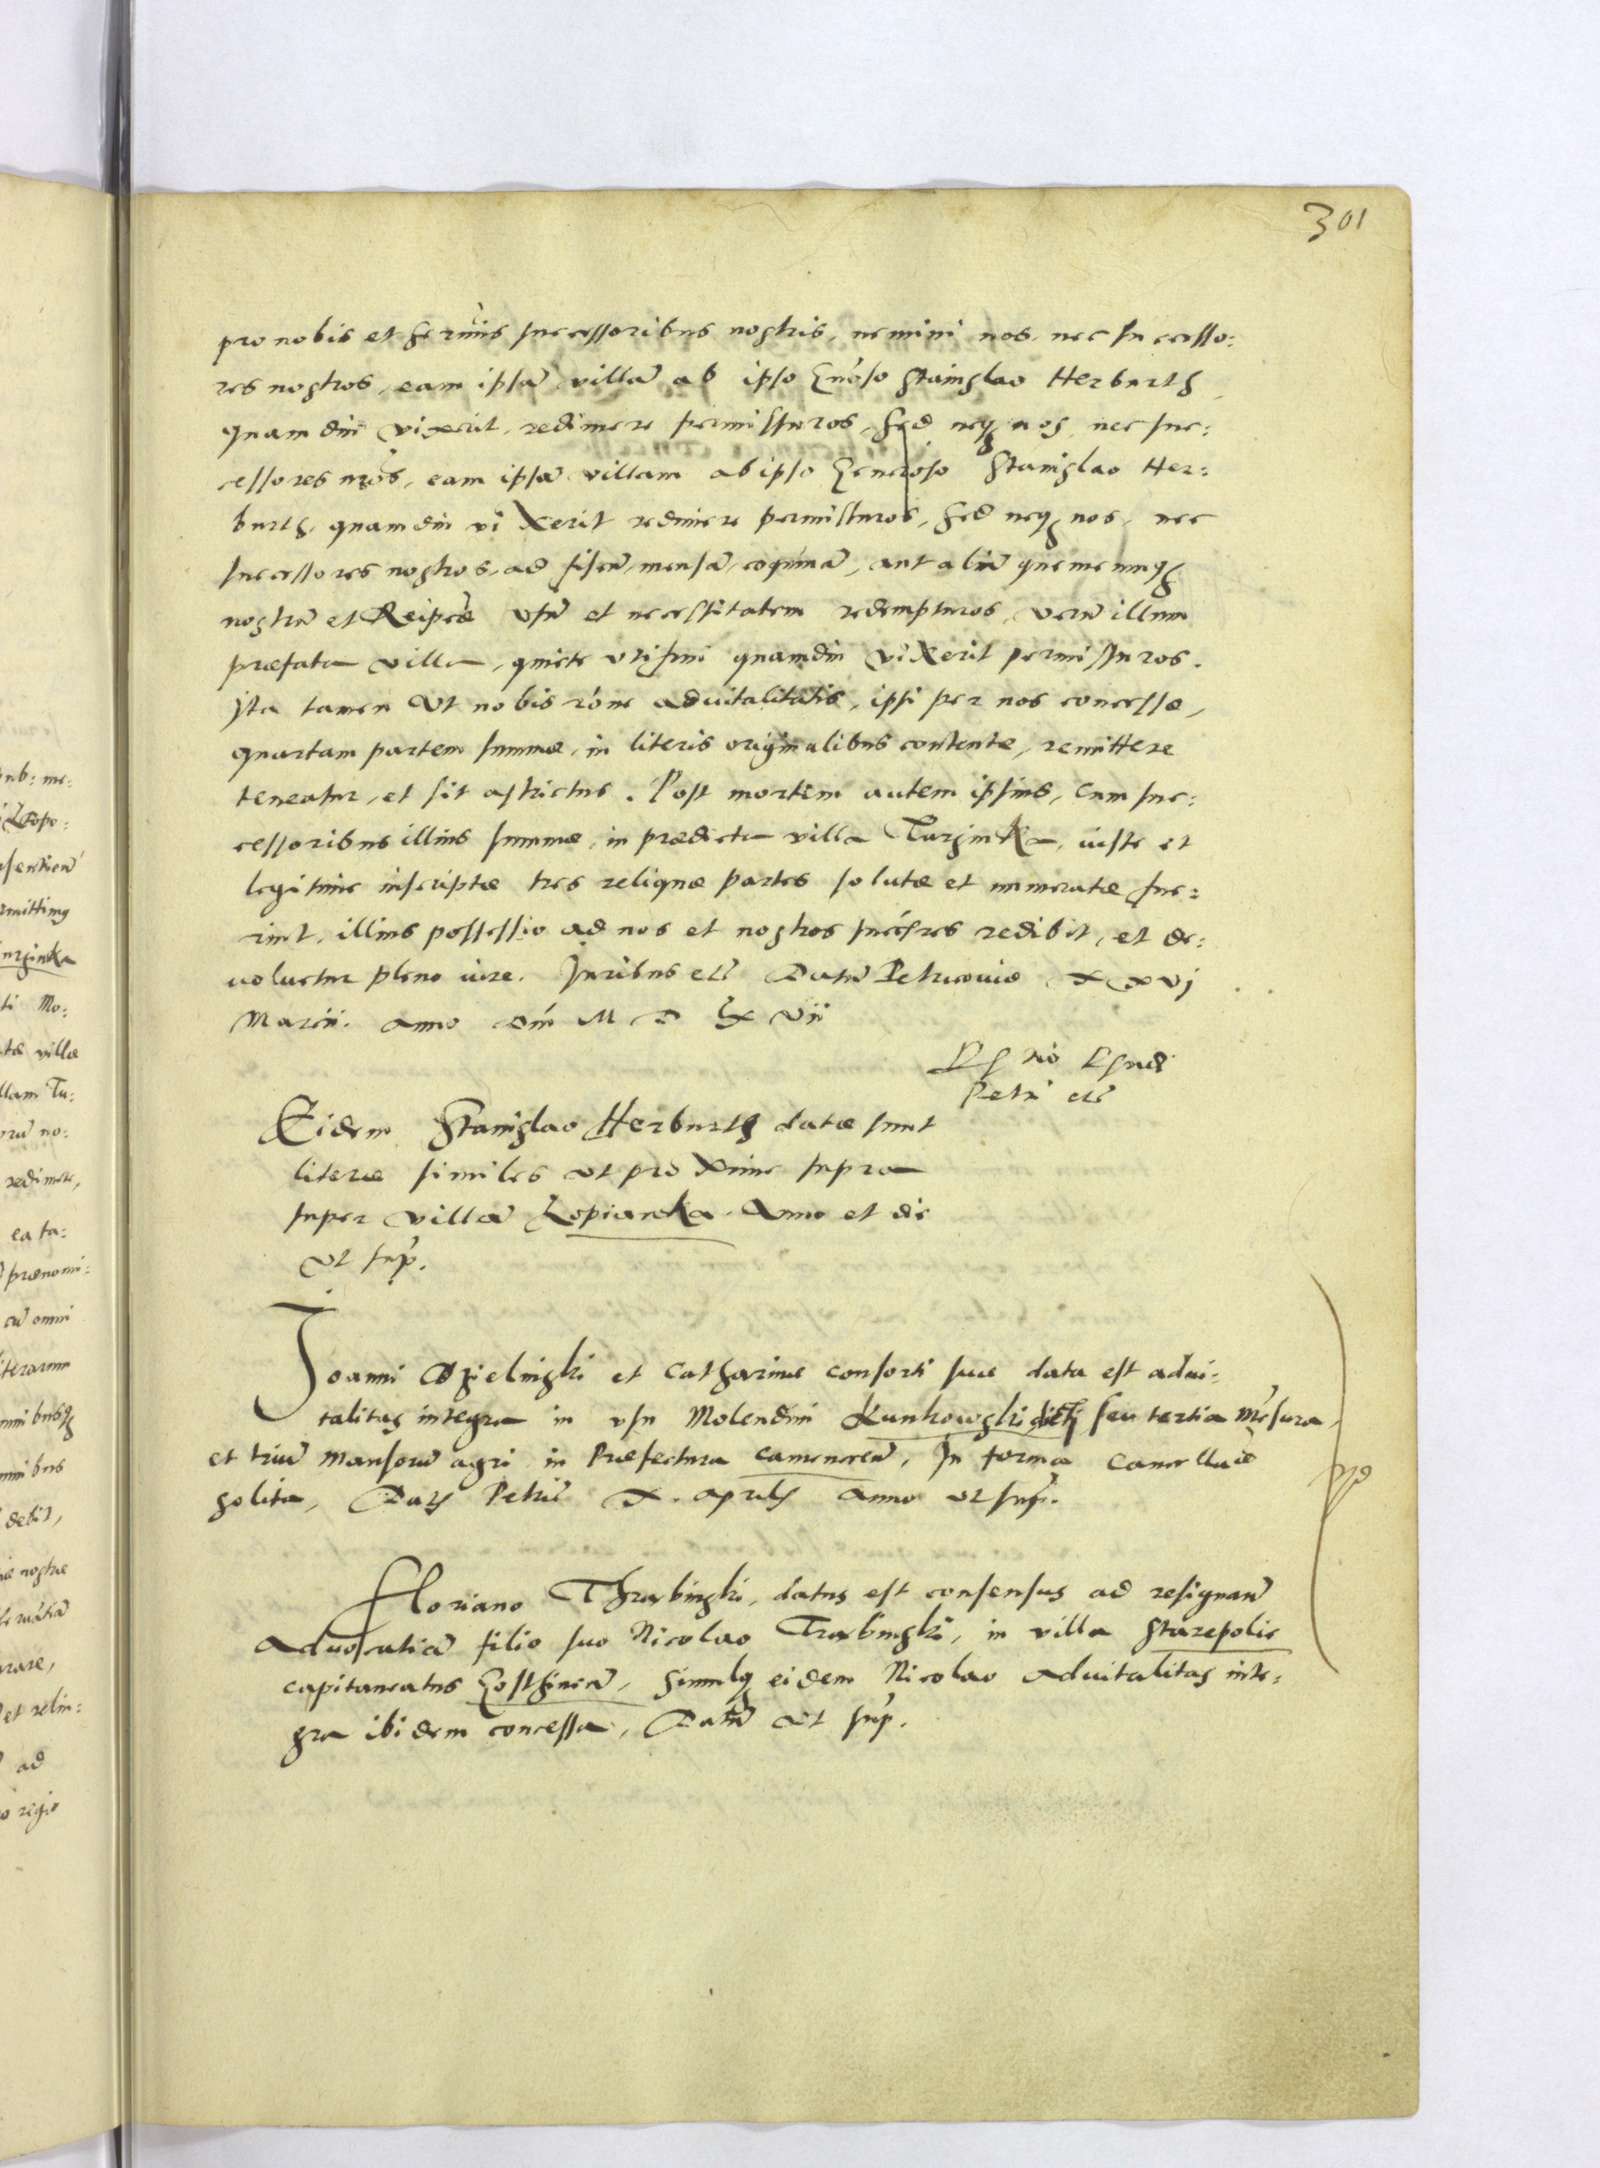 301
pro nobis et sermis successoribus nostris, nemini nos, nec successo:
res nostros, eam ipsã villã ab ipso Gnõso Stanislao Herburth,
quamdiu vixerit, redimere permissuros, sed neq3 nos, nec suc:
cessores nrõs, eam ipsã villam ab ipso Generoso Stanislao Her:
burth, quamdiu vixerit redimere permissuros, sed neq3 nos, nec
successores nostros, ad fiscũ, mensã, coquinã, aut aliũ quemcumq3
nostrũ et Reipcæ vsũ et necessitatem redempturos, verũ illum
præfata villa, quiete vti frui quamdiu vixerit permissuros.
Ita tamen vt nobis rõne aduitalitatis, ipsi per nos concessæ,
quartam partem summæ, in literis originalibus contentæ, remittere
teneatur, et sit astrictus. Post mortem autem ipsius, cum suc:
cessoribus illius summæ, in prædicta villa Turzinka, iuste et
legitime inscriptæ tres reliquæ partes solutæ et numeratæ fue:
rint, illius possessio ad nos et nostros succřes redibit, et de:
uoluetur pleno iure. Juribus etc̃ Datũ Petricouiæ XXVI
Marcii. anno dñi M D LX Vii
Petri etc̃
Eidem Stanislao Herburth datæ sunt
literæ similes vt proxime supra
super villã Lopianka. Anno et die
vt sup̃.
Joanni Dzielinski et Catharinæ consorti suæ data est adui:
talitas integra in vsu Molendini Kunkowski dicti seu tertia mẽsura,
et triũ mansorũ agri in Præfectura camenecẽ, In forma Cancellariæ
solita, Dat3 Petric̃ X. aprilis anno vt sup̃.
Floriano Thrabinski, datus est consensus ad resignanď
Aduocatiã filio suo Nicolao Trabinski, in villa Starepolie
capitaneatus Gosthinen̄, Simulq3 eidem Nicolao aduitalitas inte:
gra ibidem concessa, Datũ vt sup̃.